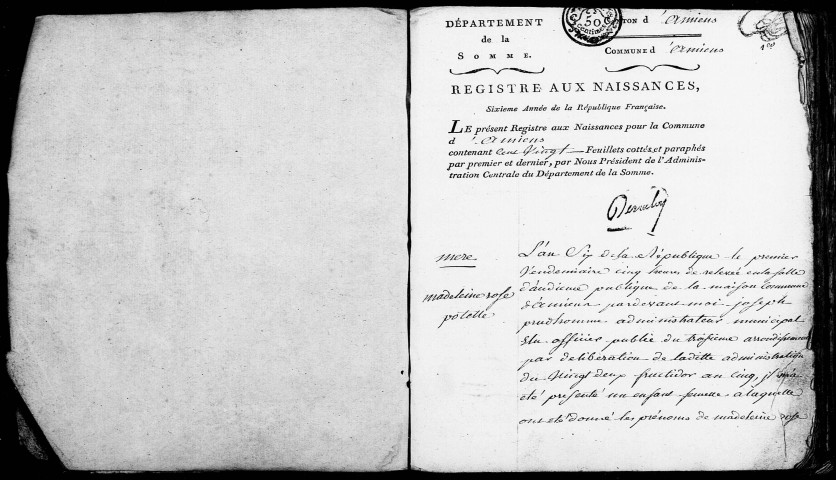 DÉPARTEMENT
de la
SOMME.
TON d'amiens
COMMUNE d'amiens
50
centimes
100
REGISTRE AUX NAISSANCES,
Sixieme Année de la République Française.
LE présent Registre aux Naissances pour la Commune
d'amiens
contenant cent Vingt Feuillets cottés, et paraphés
par premier et dernier, par Nous Président de l'Adminis-
tration Centrale du Département de la Somme.
mere
madeleine rose
potelle
L'an Six de la République le premier
Vendemiaire cinq heures de relevée en la salle
d'audience publique de la maison Commune
d'amiens pardevant moi joseph
prudhomme administrateur municipal
Elu officier public du troisieme arrondissement
par deliberation de ladite administration
du Vingt deux fructidor an cinq, il m'a
été presenté un enfant femelle a laquelle
ont été donné les prénoms de madeleine rose